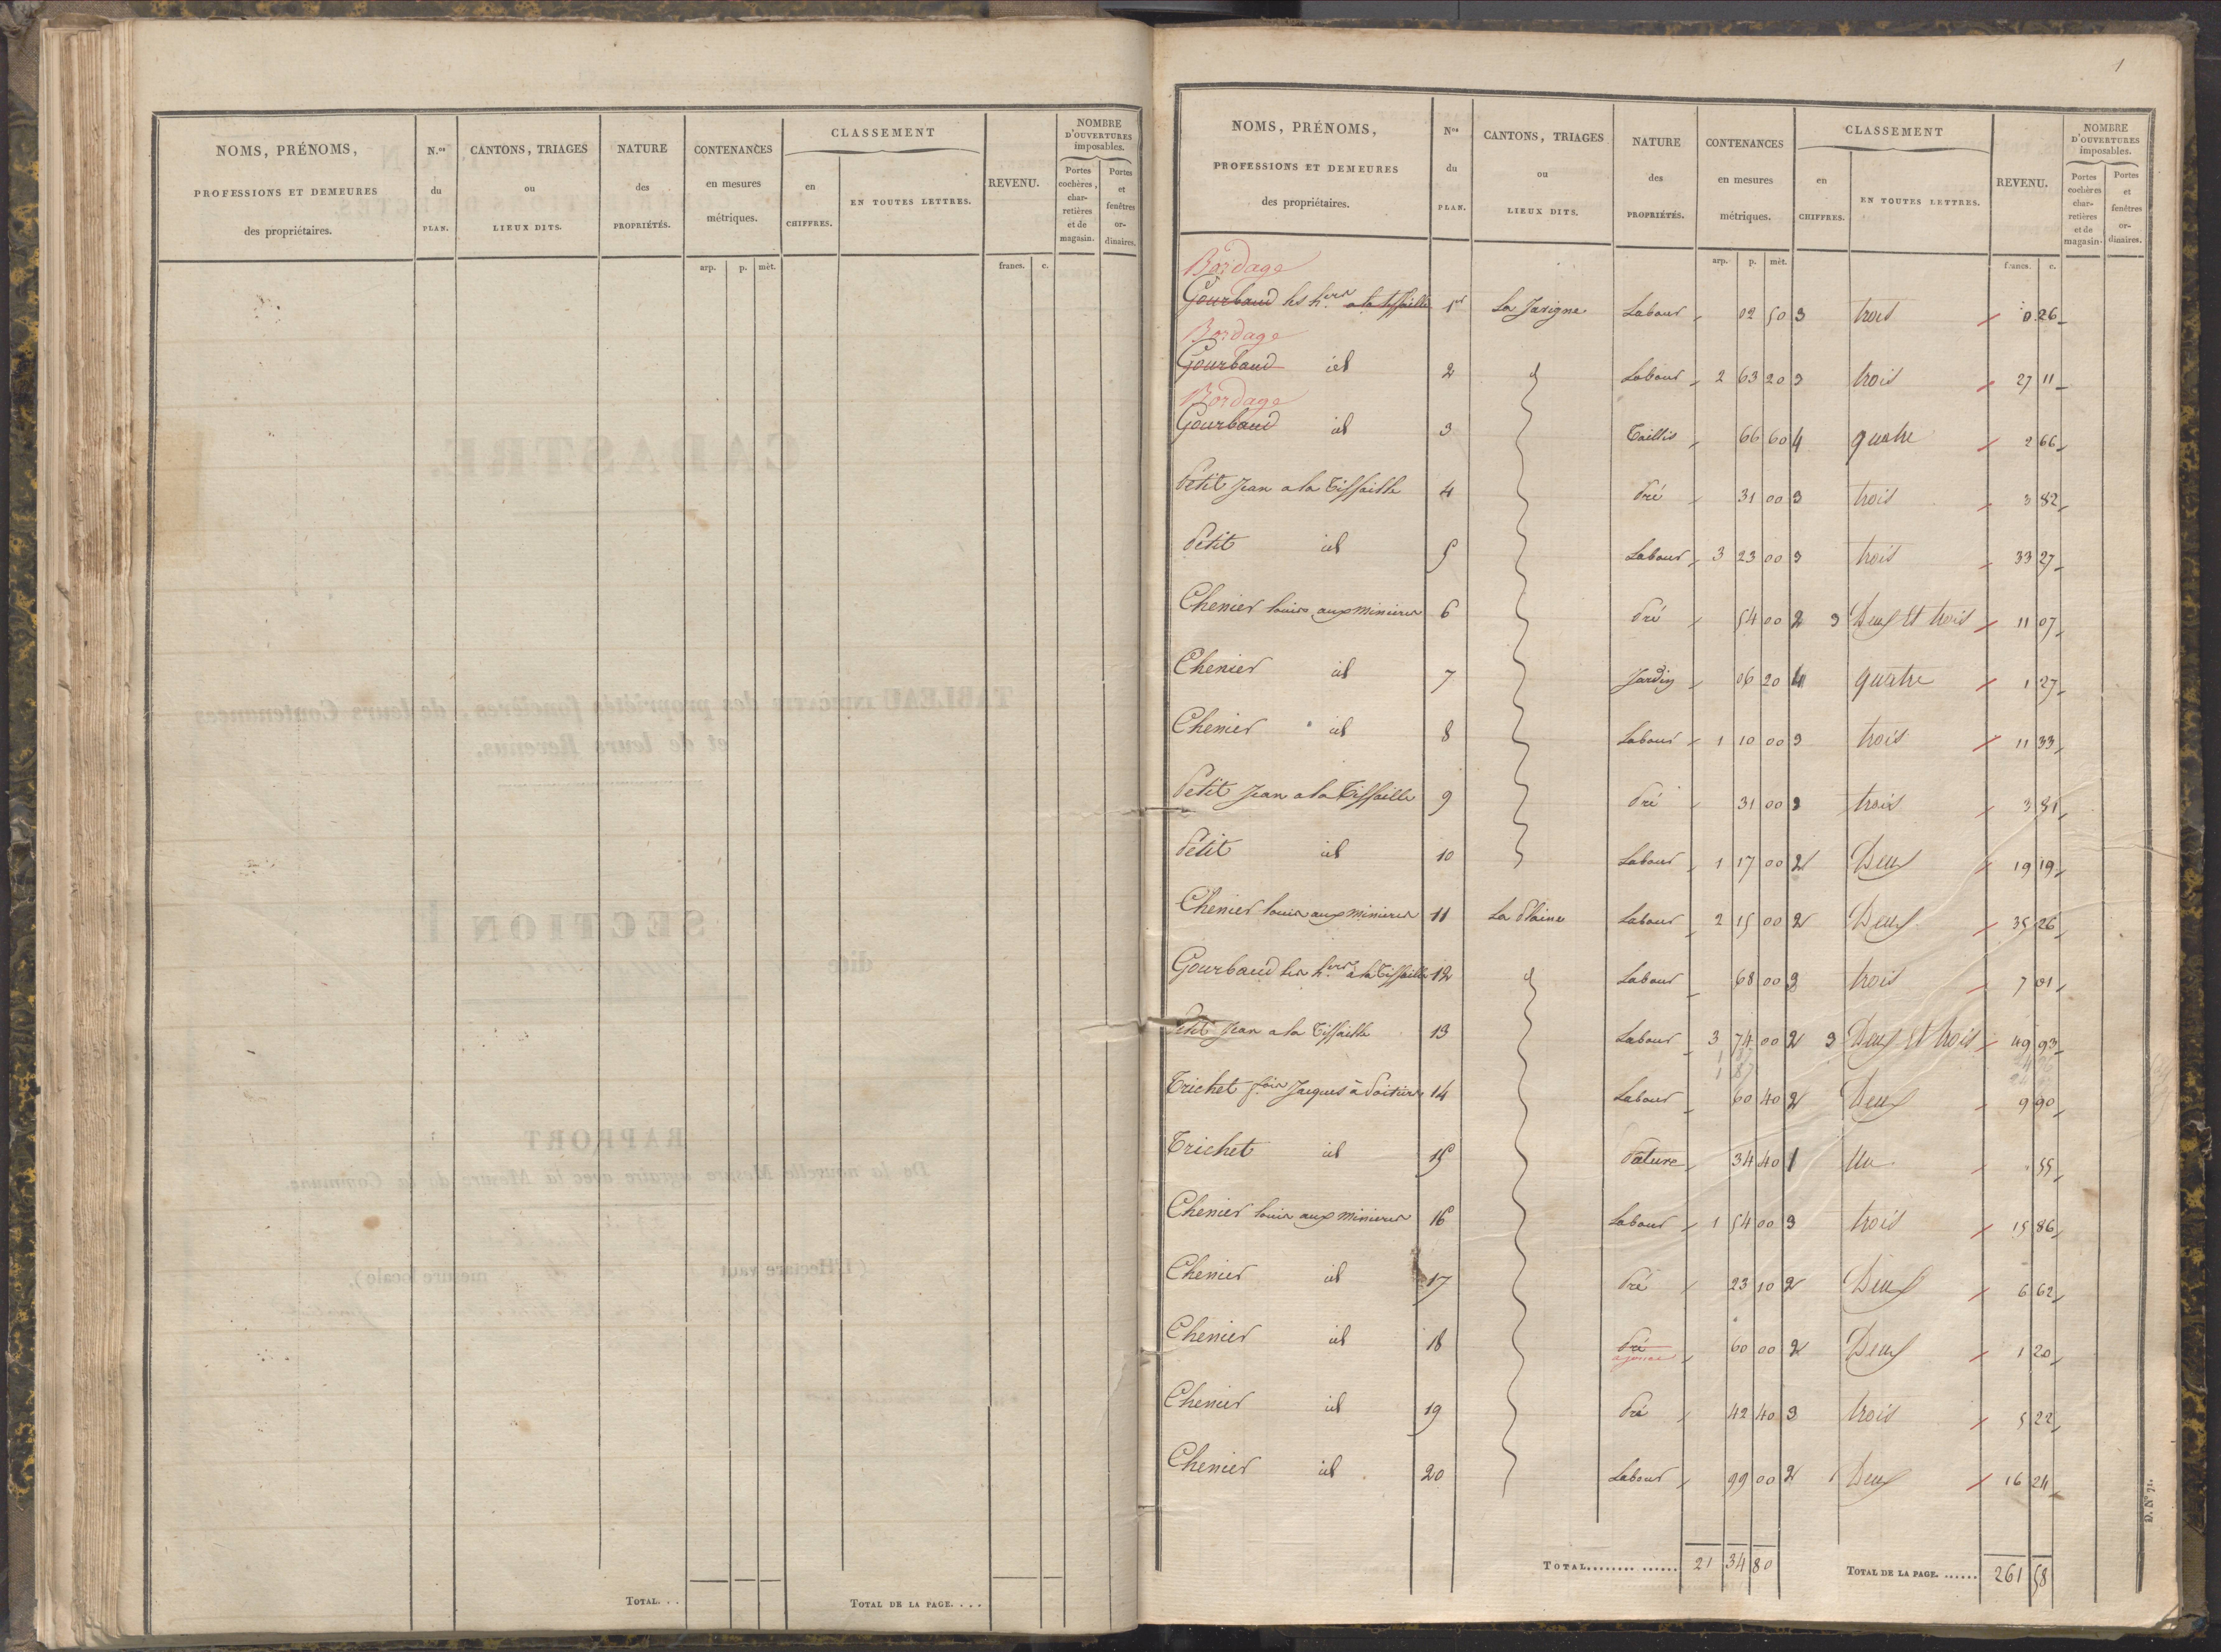 NOMS, PRÉNOMS, PROFESSIONS ET DEMEURES des propriétaires. N.os du PLAN. CANTONS, TRIAGES ou LIEUX DITS. NATURE des PROPRIÉTÉS. CONTENANCES en mesures métriques. CLASSEMENT en CHIFFRES. EN TOUTES LETTRES. REVENU. NOMBRE D'OUVERTURES imposables. Portes cochères, char-retières et de magasin. Portes et fenêtres or-dinaires.
arp. p. mèt. francs. c.
TOTAL. . . TOTAL DE LA PAGE. . . .
1
NOMS, PRÉNOMS, PROFESSIONS ET DEMEURES des propriétaires. Nos du PLAN. CANTONS, TRIAGES ou LIEUX DITS. NATURE des PROPRIÉTÉS. CONTENANCES en mesures métriques. CLASSEMENT en CHIFFRES. EN TOUTES LETTRES. REVENU. NOMBRE D'OUVERTURES imposables. Portes cochères char-retières et de magasin. Portes et fenêtres or-dinaires.
arp. p. mèt. francs. c.
Bordage
Gourbaud les hers a la tiffaille 1er La Jarigne Labour 02 50 3 trois 0 26
Bordage
Gourbaud id 2 d Labour 2 63 20 3 trois 27 11
Bordage
Gourbaud id 3 Taillis 66 60 4 quatre 2 66
Petit Jean a la Tiffaille 4 Pré 31 00 3 trois 3 82
Petit id 5 Labour 3 23 00 3 trois 33 27
Chenier louis aux minieres 6 Pré 54 00 2 3 Deux et trois 11 07
Chenier id 7 Jardin 06 20 4 quatre 1 27
Chenier id 8 Labour 1 10 00 3 trois 11 33
Petit Jean a la Tiffaille 9 Pré 31 00 3 trois 3 81
Petit id 10 Labour 1 17 00 2 Deux 19 19
Chenier louis aux minieres 11 La Plaine Labour 2 15 00 2 Deux 35 26
Gourbaud les hers a la Tiffaille 12 d Labour 68 00 3 trois 7 01
Petit Jean a la Tiffaille 13 Labour 3 74 00 2 3 Deux et trois 49 93
1 87
Trichet fois Jacques à Poitiers 14 Labour 60 40 2 Deux 9 90
Trichet id 15 Pature 34 40 1 Un 55
Chenier louis aux minieres 16 Labour 1 54 00 3 trois 15 86
Chenier id 17 Pré 23 10 2 Deux 6 62
Chenier id 18 Pré 60 00 2 Deux 1 20
ajoncs
Chenier id 19 Pré 42 40 3 trois 5 22
Chenier id 20 Labour 99 00 2 Deux 16 24
TOTAL........ ...... 21 34 80 TOTAL DE LA PAGE. ...... 261 58
D. N° 72.